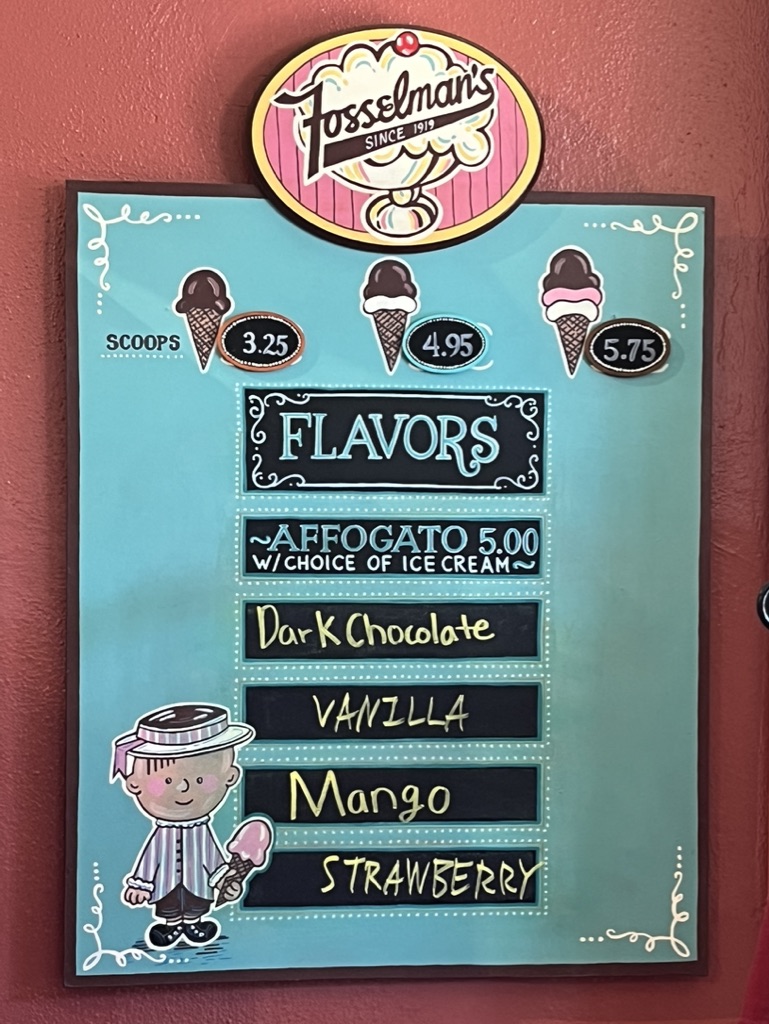 Fosselman's
SINCE 1919
SCOOPS 3.25 4.95 5.75
FLAVORS
~AFFOGATO 5.00
W/CHOICE OF ICE CREAM~
Dark Chocolate
VANILLA
Mango
STRAWBERRY